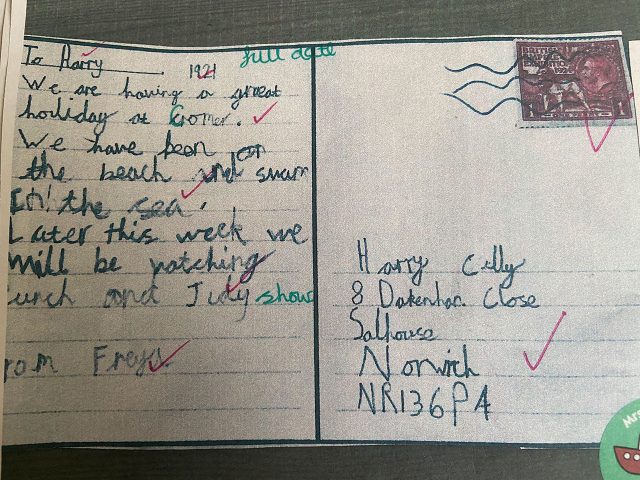 To Harry
1921 full date
We are having a great
holiday at Cromer.
We have been on
the beach and swam
In the sea.
Later this week we
will be watching
unch and Judy show
rom Freya
BRITISH EMPIRE EXHIBITION
Harry Celly
8 Dakenham Close
Salhouse
Norwich
NR136PA
Mrs